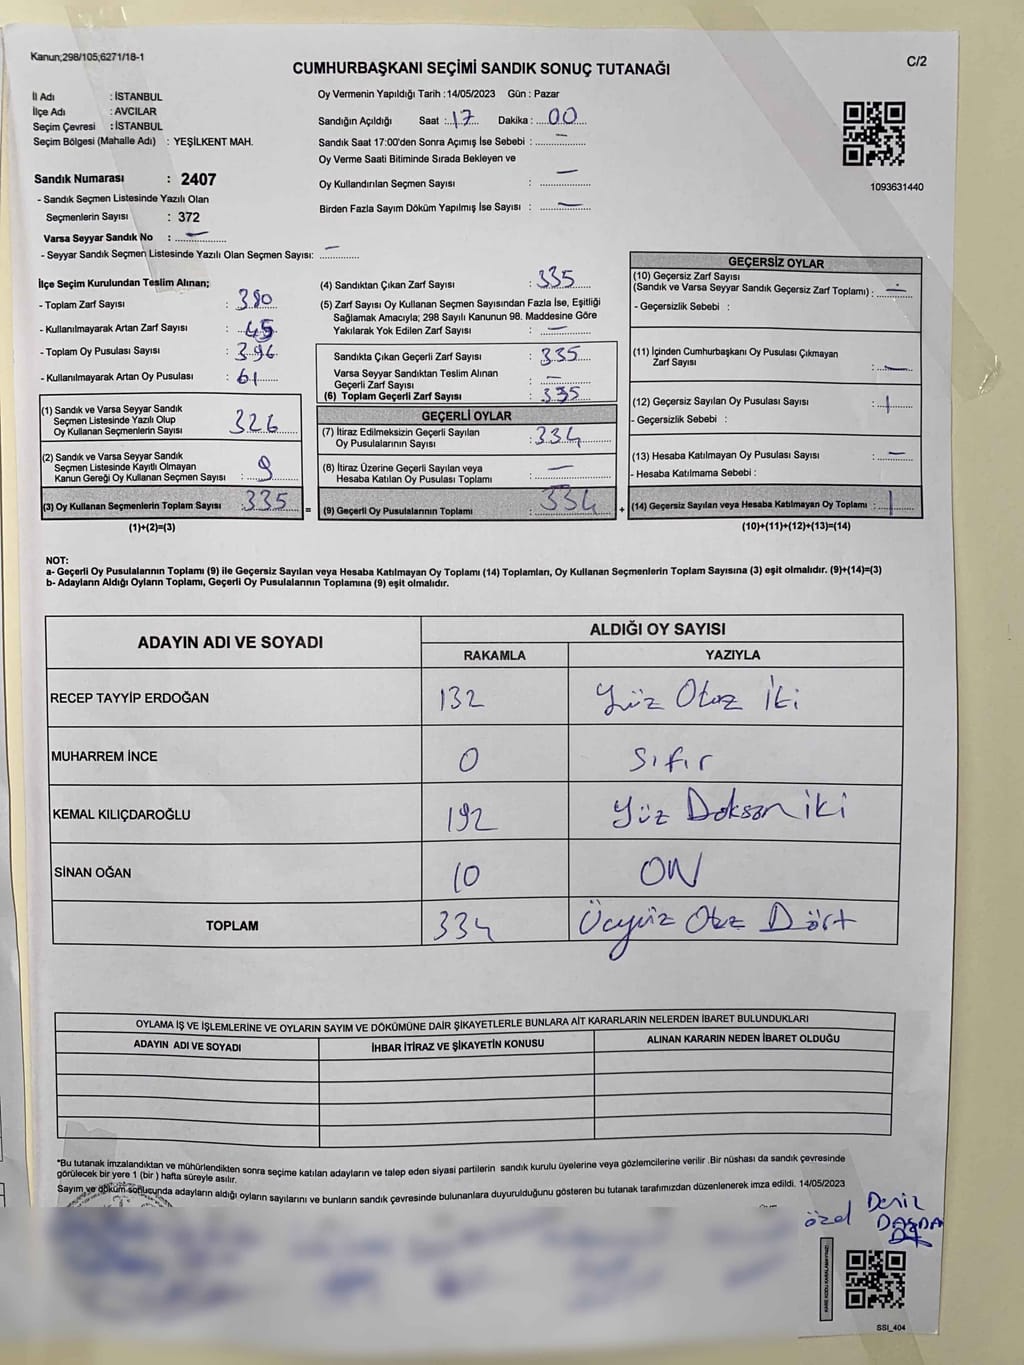 Kanun;298/105;6271/18-1
C/2
CUMHURBAŞKANI SEÇİMİ SANDIK SONUÇ TUTANAĞI
İl Adı : İSTANBUL
İlçe Adı : AVCILAR
Seçim Çevresi : İSTANBUL
Seçim Bölgesi (Mahalle Adı) : YEŞİLKENT MAH.
Sandık Numarası : 2407
- Sandık Seçmen Listesinde Yazılı Olan
Seçmenlerin Sayısı : 372
Varsa Seyyar Sandık No : –
- Seyyar Sandık Seçmen Listesinde Yazılı Olan Seçmen Sayısı: –
Oy Vermenin Yapıldığı Tarih :14/05/2023 Gün : Pazar
Sandığın Açıldığı Saat : 17 Dakika : 00
Sandık Saat 17:00'den Sonra Açımış İse Sebebi : –
Oy Verme Saati Bitiminde Sırada Bekleyen ve
Oy Kullandırılan Seçmen Sayısı : –
Birden Fazla Sayım Döküm Yapılmış İse Sayısı : –
1093631440
İlçe Seçim Kurulundan Teslim Alınan;
- Toplam Zarf Sayısı : 380
- Kullanılmayarak Artan Zarf Sayısı : 45
- Toplam Oy Pusulası Sayısı : 396
- Kullanılmayarak Artan Oy Pusulası : 61
(1) Sandık ve Varsa Seyyar Sandık
Seçmen Listesinde Yazılı Olup
Oy Kullanan Seçmenlerin Sayısı 326
(2) Sandık ve Varsa Seyyar Sandık
Seçmen Listesinde Kayıtlı Olmayan
Kanun Gereği Oy Kullanan Seçmen Sayısı : 9
(3) Oy Kullanan Seçmenlerin Toplam Sayısı : 335 =
(1)+(2)=(3)
(4) Sandıktan Çıkan Zarf Sayısı : 335
(5) Zarf Sayısı Oy Kullanan Seçmen Sayısından Fazla İse, Eşitliği
Sağlamak Amacıyla; 298 Sayılı Kanunun 98. Maddesine Göre
Yakılarak Yok Edilen Zarf Sayısı : –
Sandıkta Çıkan Geçerli Zarf Sayısı : 335
Varsa Seyyar Sandıktan Teslim Alınan
Geçerli Zarf Sayısı : –
(6) Toplam Geçerli Zarf Sayısı : 335
GEÇERLİ OYLAR
(7) İtiraz Edilmeksizin Geçerli Sayılan
Oy Pusulalarının Sayısı : 334
(8) İtiraz Üzerine Geçerli Sayılan veya
Hesaba Katılan Oy Pusulası Toplamı : –
(9) Geçerli Oy Pusulalarının Toplamı : 334 +
GEÇERSİZ OYLAR
(10) Geçersiz Zarf Sayısı
(Sandık ve Varsa Seyyar Sandık Geçersiz Zarf Toplamı) : –
- Geçersizlik Sebebi :
(11) İçinden Cumhurbaşkanı Oy Pusulası Çıkmayan
Zarf Sayısı : –
(12) Geçersiz Sayılan Oy Pusulası Sayısı : 1
- Geçersizlik Sebebi :
(13) Hesaba Katılmayan Oy Pusulası Sayısı : –
- Hesaba Katılmama Sebebi :
(14) Geçersiz Sayılan veya Hesaba Katılmayan Oy Toplamı : 1
(10)+(11)+(12)+(13)=(14)
NOT:
a- Geçerli Oy Pusulalarının Toplamı (9) ile Geçersiz Sayılan veya Hesaba Katılmayan Oy Toplamı (14) Toplamları, Oy Kullanan Seçmenlerin Toplam Sayısına (3) eşit olmalıdır. (9)+(14)=(3)
b- Adayların Aldığı Oyların Toplamı, Geçerli Oy Pusulalarının Toplamına (9) eşit olmalıdır.
ADAYIN ADI VE SOYADI ALDIĞI OY SAYISI
RAKAMLA YAZIYLA
RECEP TAYYİP ERDOĞAN 132 Yüz Otuz İki
MUHARREM İNCE 0 Sıfır
KEMAL KILIÇDAROĞLU 192 Yüz Doksan iki
SİNAN OĞAN 10 ON
TOPLAM 334 Üçyüz Otuz Dört
OYLAMA İŞ VE İŞLEMLERİNE VE OYLARIN SAYIM VE DÖKÜMÜNE DAİR ŞİKAYETLERLE BUNLARA AİT KARARLARIN NELERDEN İBARET BULUNDUKLARI
ADAYIN ADI VE SOYADI İHBAR İTİRAZ VE ŞİKAYETİN KONUSU ALINAN KARARIN NEDEN İBARET OLDUĞU
*Bu tutanak imzalandıktan ve mühürlendikten sonra seçime katılan adayların ve talep eden siyasi partilerin sandık kurulu üyelerine veya gözlemcilerine verilir .Bir nüshası da sandık çevresinde
görülecek bir yere 1 (bir ) hafta süreyle asılır.
Sayım ve döküm sonucunda adayların aldığı oyların sayılarını ve bunların sandık çevresinde bulunanlara duyurulduğunu gösteren bu tutanak tarafımızdan düzenlenerek imza edildi. 14/05/2023
özel Deniz
SSİ_404